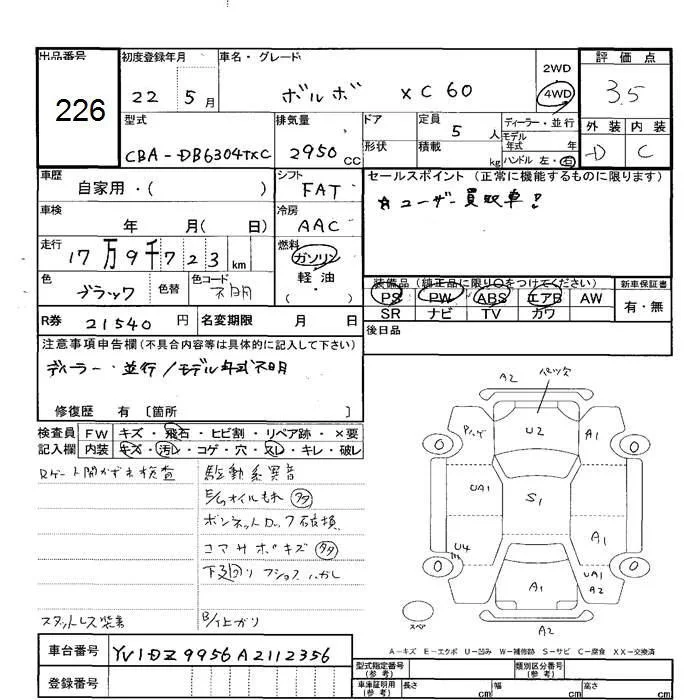 出品番号
226
初度登録年月
22 5月
車名・グレード
ボルボ XC60
2WD
4WD
評価点
3.5
外装 内装
D C
型式
CBA-DB6304TXC
排気量
2950cc
ドア
形状
定員
5人
積載
kg
ディーラー・並行
モデル
年式 年
ハンドル 左・右
車歴
自家用・( )
シフト
FAT
セールスポイント (正常に機能するものに限ります)
☆ユーザー買取車!
車検
年 月( 日)
冷房
AAC
走行
17万9千723km
燃料
ガソリン
軽油
( )
色
ブラック
色替
色コード
不明
装備品(純正品に限り○をつけてください)
PS PW ABS エアB AW
SR ナビ TV カワ
新車保証書
有・無
R券 21540円
名変期限 月 日
後日品
注意事項申告欄(不具合内容等は具体的に記入して下さい)
ディーラー・並行/モデル年式不明
修復歴 有〔箇所 〕
検査員 FW キズ・飛石・ヒビ割・リペア跡・×要
記入欄 内装 キズ・汚レ・コゲ・穴・スレ・キレ・破レ
Rゲート開かず未検査
駆動系異音
E/Gオイルもれ
ボンネットロック破損
コマサポキズ
下廻り
スタットレス装着
B/上がり
A2
U2
A1
UA1
S1
A1
U4
A1
UA1
A2
A2
0
0
0
0
スペア
A-キズ E-エクボ U-凹み W-補修跡 S-サビ C-腐食 XX-交換済
車台番号
YV1DZ9956A2112356
登録番号
型式指定番号
(参考)
類別区分番号
(参考)
車庫証明用
(参考)
長さ cm
幅 cm
高さ cm